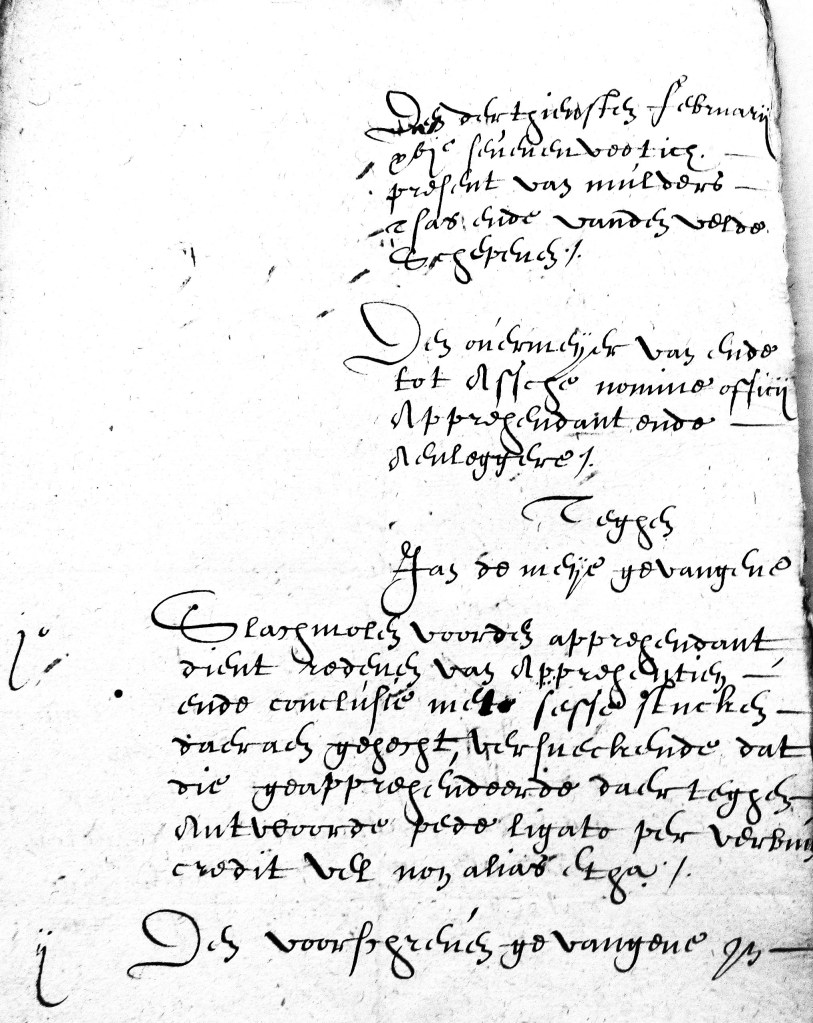 Den derthiensten Februarij
xvjc seuenenveertich.
present van mulders
Tsas ende vanden velde
Schepenen /.
Den ouermeyer van ende
tot Assche nomine officij
Apprehendant ende
Aenleggere /.
Teghen
Jan de meye gevangene
jo Slachmolen voorden apprehendant
dient redenen van Apprehentien
ende conclusie mets sesse stucken
daeraen gehecht, versueckende dat
die geapprehendeerde daer teghen
Antwoorde pede ligato per verbum
credit vel non alias etha /.
ij Den voorschreuen gevangene